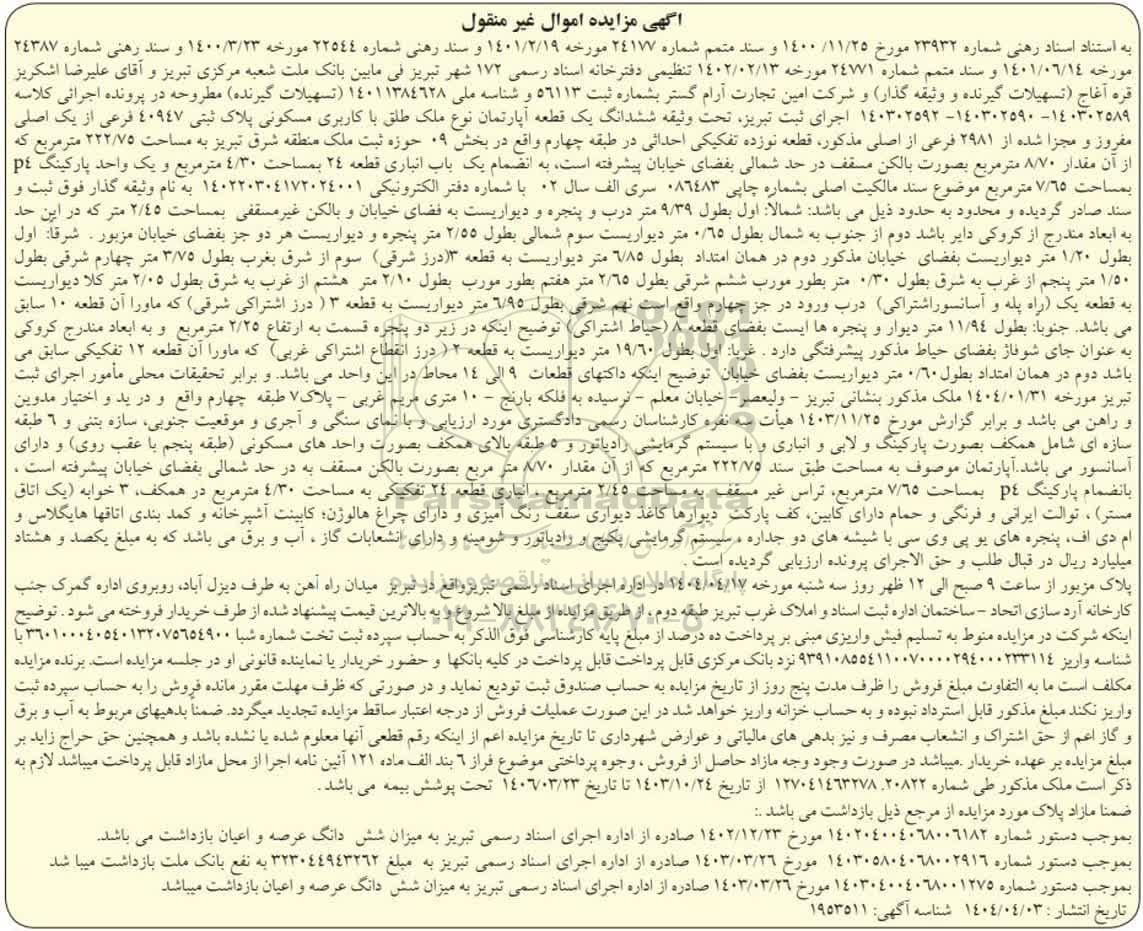 آگهی مزایده اموال غیر منقول
به استناد اسناد رهنی شماره ۲۳۹۳۲ مورخ ۱۴۰۰/۱۱/۲۵ و سند متمم شماره ۲۴۱۷۷ مورخه ۱۴۰۱/۲/۱۹ و سند رهنی شماره ۲۲۵۴۴ مورخه ۱۴۰۰/۳/۲۳ و سند رهنی شماره ۲۴۳۸۷
مورخه ۱۴۰۱/۰۶/۱۴ و سند متمم شماره ۲۴۷۷۱ مورخه ۱۴۰۲/۰۲/۱۳ تنظیمی دفترخانه اسناد رسمی ۱۷۲ شهر تبریز فی مابین بانک ملت شعبه مرکزی تبریز و آقای علیرضا اشکریز
قره آغاج (تسهیلات گیرنده و وثیقه گذار) و شرکت امین تجارت آرام گستر بشماره ثبت ۵۶۱۱۳ و شناسه ملی ۱۴۰۱۱۳۸۴۶۲۸ (تسهیلات گیرنده) مطروحه در پرونده اجرائی کلاسه
۱۴۰۳۰۲۵۸۹- ۱۴۰۳۰۲۵۹۰- ۱۴۰۳۰۲۵۹۲ اجرای ثبت تبریز، تحت وثیقه ششدانگ یک قطعه آپارتمان نوع ملک طلق با کاربری مسکونی پلاک ثبتی ۴۰۹۴۷ فرعی از یک اصلی
مفروز و مجزا شده از ۲۹۸۱ فرعی از اصلی مذکور، قطعه نوزده تفکیکی احداثی در طبقه چهارم واقع در بخش ۰۹ حوزه ثبت ملک منطقه شرق تبریز به مساحت ۲۲۲/۷۵ مترمربع که
از آن مقدار ۸/۷۰ مترمربع بصورت بالکن مسقف در حد شمالی بفضای خیابان پیشرفته است، به انضمام یک باب انباری قطعه ۲۴ بمساحت ۴/۳۰ مترمربع و یک واحد پارکینگ p۴
بمساحت ۷/۶۵ مترمربع موضوع سند مالکیت اصلی بشماره چاپی ۰۸۶۴۸۳ سری الف سال ۰۲ با شماره دفتر الکترونیکی ۱۴۰۲۲۰۳۰۴۱۷۲۰۲۴۰۰۱ به نام وثیقه گذار فوق ثبت و
سند صادر گردیده و محدود به حدود ذیل می باشد: شمالا: اول بطول ۹/۳۹ متر درب و پنجره و دیواریست به فضای خیابان و بالکن غیرمسقفی بمساحت ۲/۴۵ متر که در این حد
به ابعاد مندرج از کروکی دایر باشد دوم از جنوب به شمال بطول ۰/۶۵ متر دیواریست سوم شمالی بطول ۲/۵۵ متر پنجره و دیواریست هر دو جز بفضای خیابان مزبور . شرقا: اول
بطول ۱/۲۰ متر دیواریست بفضای خیابان مذکور دوم در همان امتداد بطول ۶/۸۵ متر دیواریست به قطعه ۳(درز شرقی) سوم از شرق بغرب بطول ۳/۷۵ متر چهارم شرقی بطول
۱/۵۰ متر پنجم از غرب به شرق بطول ۰/۳۰ متر بطور مورب ششم شرقی بطول ۲/۶۵ متر هفتم بطور مورب بطول ۲/۱۰ متر هشتم از غرب به شرق بطول ۲/۰۵ متر کلا دیواریست
به قطعه یک (راه پله و آسانسوراشتراکی) درب ورود در جز چهارم واقع است نهم شرقی بطول ۶/۹۵ متر دیواریست به قطعه ۳ ( درز اشتراکی شرقی) که ماورا آن قطعه ۱۰ سابق
می باشد. جنوبا: بطول ۱۱/۹۴ متر دیوار و پنجره ها ایست بفضای قطعه ۸ (حیاط اشتراکی) توضیح اینکه در زیر دو پنجره قسمت به ارتفاع ۲/۲۵ مترمربع و به ابعاد مندرج کروکی
به عنوان جای شوفاژ بفضای حیاط مذکور پیشرفتگی دارد . غربا: اول بطول ۱۹/۶۰ متر دیواریست به قطعه ۲ ( درز انقطاع اشتراکی غربی) که ماورا آن قطعه ۱۲ تفکیکی سابق می
باشد دوم در همان امتداد بطول ۰/۶۰ متر دیواریست بفضای خیابان توضیح اینکه داکتهای قطعات ۹ الی ۱۴ محاط در این واحد می باشد. و برابر تحقیقات محلی مأمور اجرای ثبت
تبریز مورخه ۱۴۰۴/۰۱/۳۱ ملک مذکور بنشانی تبریز - ولیعصر- خیابان معلم - نرسیده به فلکه بارنج - ۱۰ متری مریم غربی - پلاک۷ طبقه چهارم واقع و در ید و اختیار مدوین
و راهن می باشد و برابر گزارش مورخ ۱۴۰۳/۱۱/۲۵ هیأت سه نفره کارشناسان رسمی دادگستری مورد ارزیابی و با نمای سنگی و آجری و موقعیت جنوبی، سازه بتنی و ۶ طبقه
سازه ای شامل همکف بصورت پارکینگ و لابی و انباری و با سیستم گرمایشی رادیاتور و ۵ طبقه بالای همکف بصورت واحد های مسکونی (طبقه پنجم با عقب روی) و دارای
آسانسور می باشد.آپارتمان موصوف به مساحت طبق سند ۲۲۲/۷۵ مترمربع که از آن مقدار ۸/۷۰ متر مربع بصورت بالکن مسقف به در حد شمالی بفضای خیابان پیشرفته است ،
بانضمام پارکینگ p۴ بمساحت ۷/۶۵ مترمربع، تراس غیر مسقف به مساحت ۲/۴۵ مترمربع . انباری قطعه ۲۴ تفکیکی به مساحت ۴/۳۰ مترمربع در همکف، ۳ خوابه (یک اتاق
مستر) ، توالت ایرانی و فرنگی و حمام دارای کابین، کف پارکت دیوارها کاغذ دیواری سقف رنگ آمیزی و دارای چراغ هالوژن؛ کابینت آشپرخانه و کمد بندی اتاقها هایگلاس و
ام دی اف، پنجره های یو پی وی سی با شیشه های دو جداره ، سیستم گرمایشی پکیج و رادیاتور و شومینه و دارای انشعابات گاز ، آب و برق می باشد که به مبلغ یکصد و هشتاد
میلیارد ریال در قبال طلب و حق الاجرای پرونده ارزیابی گردیده است .
پلاک مزبور از ساعت ۹ صبح الی ۱۲ ظهر روز سه شنبه مورخه ۱۴۰۴/۰۴/۱۷ در اداره اجرای اسناد رسمی تبریزواقع در تبریز میدان راه آهن به طرف دیزل آباد، روبروی اداره گمرک جنب
کارخانه آرد سازی اتحاد - ساختمان اداره ثبت اسناد و املاک غرب تبریز طبقه دوم ، از طریق مزایده از مبلغ بالا شروع و به بالاترین قیمت پیشنهاد شده از طرف خریدار فروخته می شود . توضیح
اینکه شرکت در مزایده منوط به تسلیم فیش واریزی مبنی بر پرداخت ده درصد از مبلغ پایه کارشناسی فوق الذکر به حساب سپرده ثبت تخت شماره شبا ۳۶۰۱۰۰۰۴۰۵۴۰۱۳۲۰۷۵۶۵۴۹۰۰ با
شناسه واریز ۹۳۹۱۰۸۵۵۴۱۱۰۰۷۰۰۰۰۲۹۴۰۰۰۲۳۳۱۱۴ نزد بانک مرکزی قابل پرداخت قابل پرداخت در کلیه بانکها و حضور خریدار یا نماینده قانونی او در جلسه مزایده است. برنده مزایده
مکلف است ما به التفاوت مبلغ فروش را ظرف مدت پنج روز از تاریخ مزایده به حساب صندوق ثبت تودیع نماید و در صورتی که ظرف مهلت مقرر مانده فروش را به حساب سپرده ثبت
واریز نکند مبلغ مذکور قابل استرداد نبوده و به حساب خزانه واریز خواهد شد در این صورت عملیات فروش از درجه اعتبار ساقط مزایده تجدید میگردد. ضمناً بدهیهای مربوط به آب و برق
و گاز اعم از حق اشتراک و انشعاب مصرف و نیز بدهی های مالیاتی و عوارض شهرداری تا تاریخ مزایده اعم از اینکه رقم قطعی آنها معلوم شده یا نشده باشد و همچنین حق حراج زاید بر
مبلغ مزایده بر عهده خریدار .میباشد در صورت وجود وجه مازاد حاصل از فروش ، وجوه پرداختی موضوع فراز ۶ بند الف ماده ۱۲۱ آئین نامه اجرا از محل مازاد قابل پرداخت میباشد لازم به
ذکر است ملک مذکور طی شماره ۱۲۷۰۴۱۴۶۳۲۷۸ .۲۰۸۲۲ از تاریخ ۱۴۰۳/۱۰/۲۴ تا تاریخ ۱۴۰۶/۰۳/۲۳ تحت پوشش بیمه می باشد .
ضمنا مازاد پلاک مورد مزایده از مرجع ذیل بازداشت می باشد .:
بموجب دستور شماره ۱۴۰۲۰۴۰۰۴۰۶۸۰۰۶۱۸۲ مورخ ۱۴۰۲/۱۲/۲۳ صادره از اداره اجرای اسناد رسمی تبریز به میزان شش دانگ عرصه و اعیان بازداشت می باشد.
بموجب دستور شماره ۱۴۰۳۰۵۸۰۴۰۶۸۰۰۲۹۱۶ مورخ ۱۴۰۳/۰۳/۲۶ صادره از اداره اجرای اسناد رسمی تبریز به مبلغ ۳۲۳۰۴۴۹۴۳۲۶۲ به نفع بانک ملت بازداشت میبا شد
بموجب دستور شماره ۱۴۰۳۰۴۰۰۴۰۶۸۰۰۱۲۷۵ مورخ ۱۴۰۳/۰۳/۲۶ صادره از اداره اجرای اسناد رسمی تبریز به میزان شش دانگ عرصه و اعیان بازداشت میباشد
تاریخ انتشار : ۱۴۰۴/۰۴/۰۳ شناسه آگهی: ۱۹۵۳۵۱۱
ParsNamadData
پایگاه اطلاع رسانی مناقصه و مزایده
۰۲۱-۸۸۳۴۹۶۷۰-۵